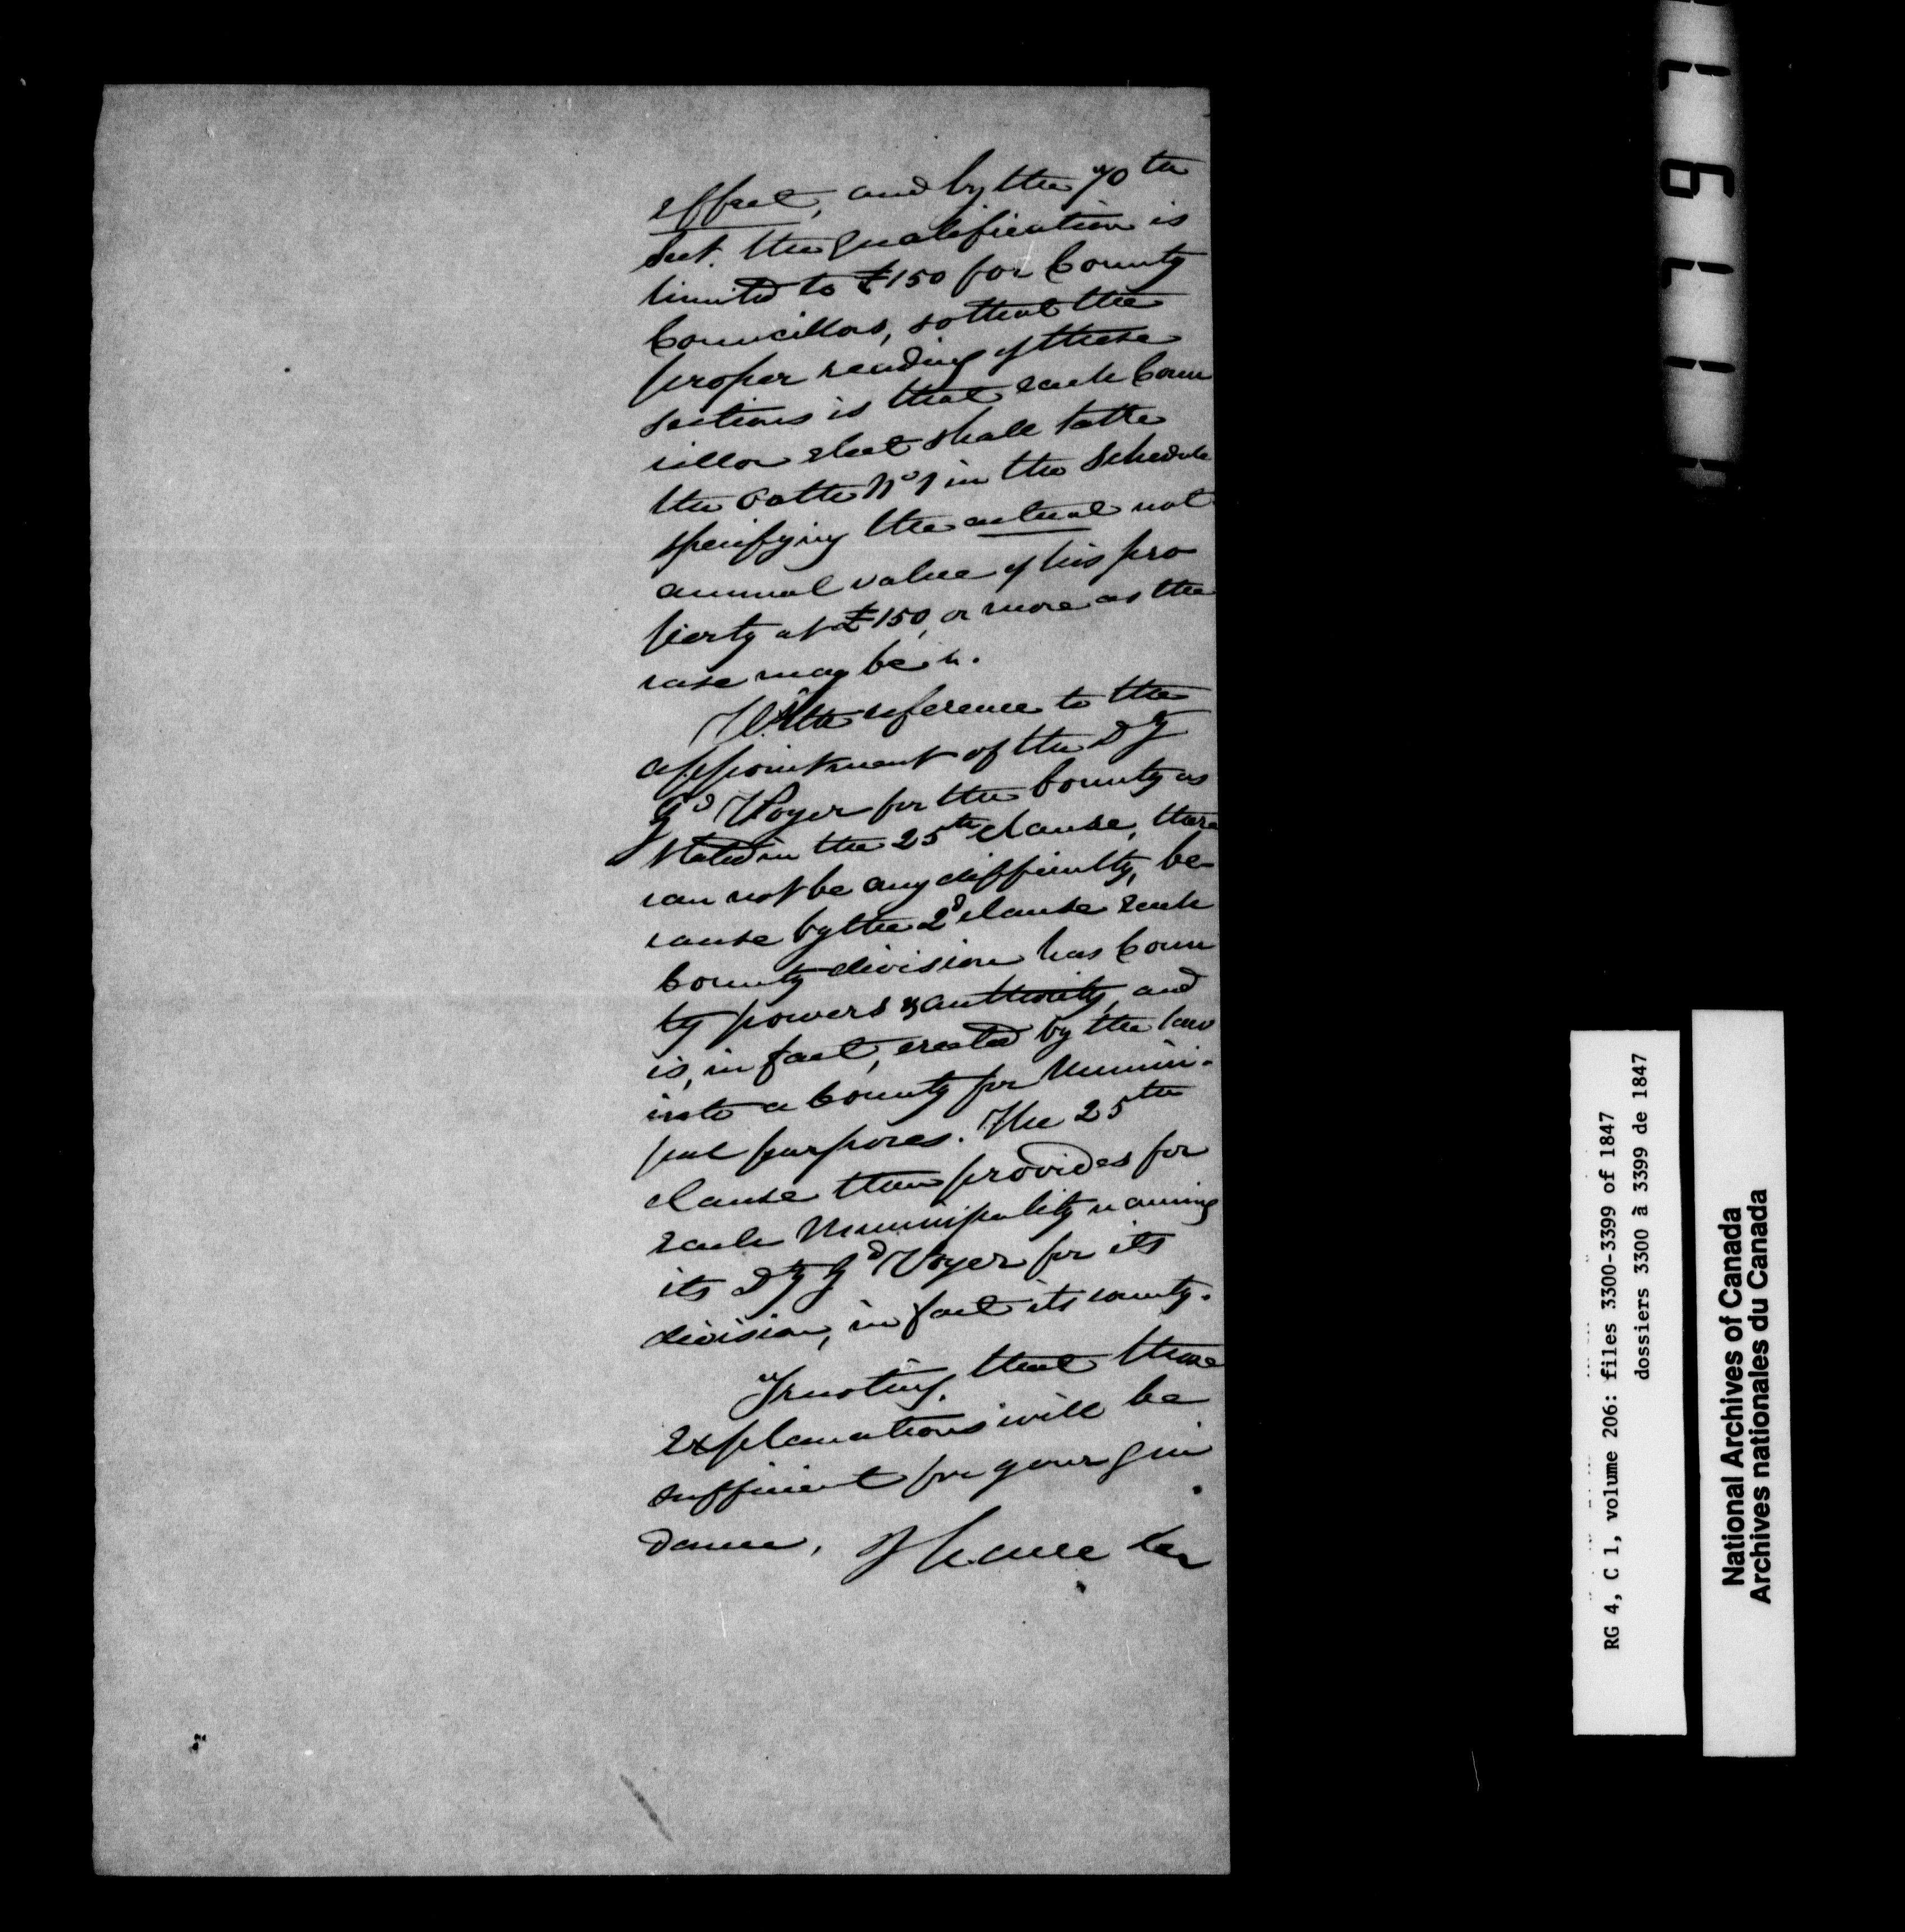 effect, and by the 70th
Sect. the qualification is
limited to £150 for County
Councillors, so that the
proper reading of these
sections is that each Coun
cillor elect shall take
the oath No 1 in the Schedule
specifying the actual not
annual value of his pro
perty at £150, or more as the
case may be.
With reference to the
appointment of the Dy
Gd Voyer for the County as
stated in the 25th clause, there
can not be any difficulty, be-
cause by the 2d clause each
County division has Coun
ty powers & authority, and
is, in fact, erected by the law
into a County for Munici-
pal purposes. The 25th
clause then provides for
each Municipality naming
its Dy Gd Voyer for its
division, in fact its county.
Trusting that these
explanations will be
sufficient for your gui
dance, I have &c
RG 4, C 1, volume 206: files 3300-3399 of 1847
dossiers 3300 à 3399 de 1847
National Archives of Canada
Archives nationales du Canada